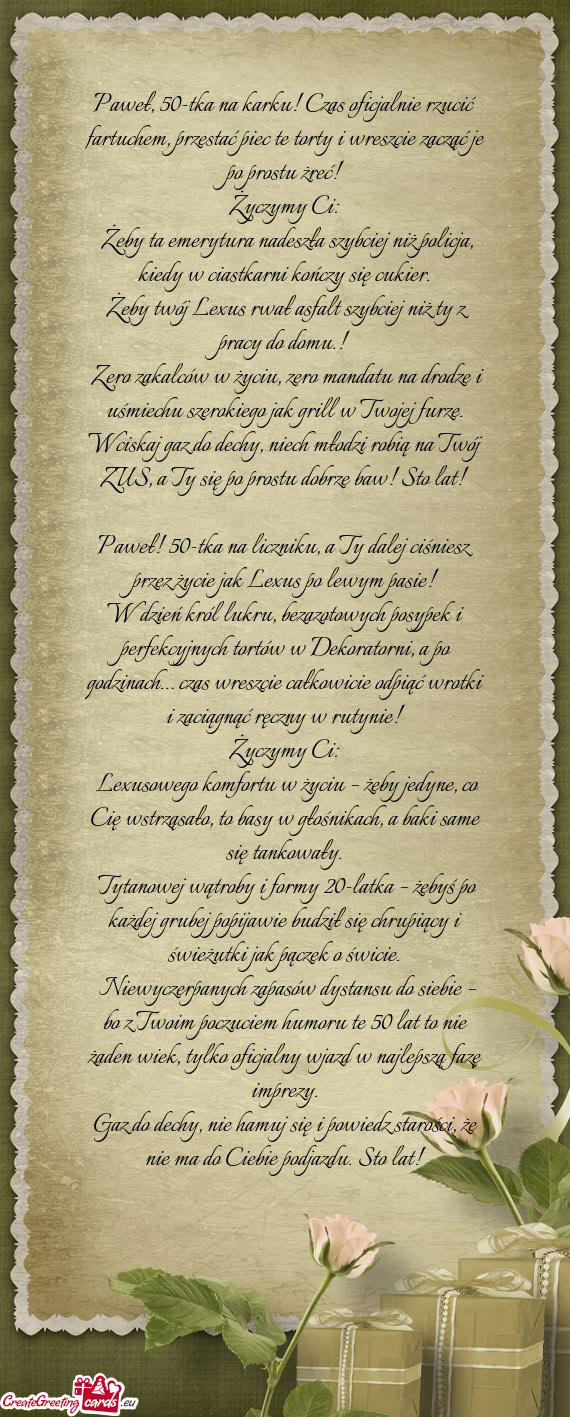 Paweł, 50-tka na karku! Czas oficjalnie rzucić
fartuchem, przestać piec te torty i wreszcie zacząć je
po prostu żreć!
Życzymy Ci:
Żeby ta emerytura nadeszła szybciej niż policja,
kiedy w ciastkarni kończy się cukier.
Żeby twój Lexus rwał asfalt szybciej niż ty z
pracy do domu.!
Zero zakalców w życiu, zero mandatu na drodze i
uśmiechu szerokiego jak grill w Twojej furze.
Wciskaj gaz do dechy, niech młodzi robią na Twój
ZUS, a Ty się po prostu dobrze baw! Sto lat!
Paweł! 50-tka na liczniku, a Ty dalej ciśniesz
przez życie jak Lexus po lewym pasie!
W dzień król lukru, bezazotowych posypek i
perfekcyjnych tortów w Dekoratorni, a po
godzinach... czas wreszcie całkowicie odpiąć wrotki
i zaciągnąć ręczny w rutynie!
Życzymy Ci:
Lexusowego komfortu w życiu – żeby jedyne, co
Cię wstrząsało, to basy w głośnikach, a baki same
się tankowały.
Tytanowej wątroby i formy 20-latka – żebyś po
każdej grubej popijawie budził się chrupiący i
świeżutki jak pączek o świcie.
Niewyczerpanych zapasów dystansu do siebie –
bo z Twoim poczuciem humoru te 50 lat to nie
żaden wiek, tylko oficjalny wjazd w najlepszą fazę
imprezy.
Gaz do dechy, nie hamuj się i powiedz starości, że
nie ma do Ciebie podjazdu. Sto lat!
CreateGreeting cards .eu